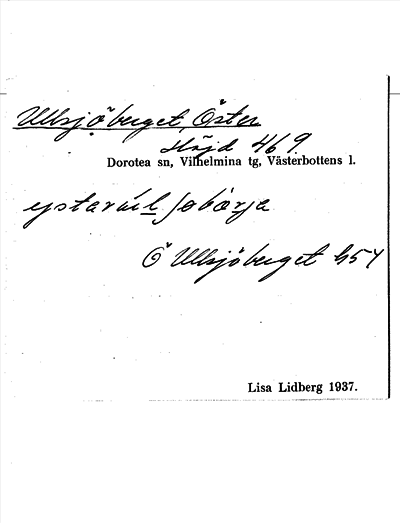 Ullsjöberget, Öster
Höjd 469.
Dorotea sn, Vilhelmina tg, Västerbottens l.
Ö Ullsjöberget
Lisa Lidberg 1937.